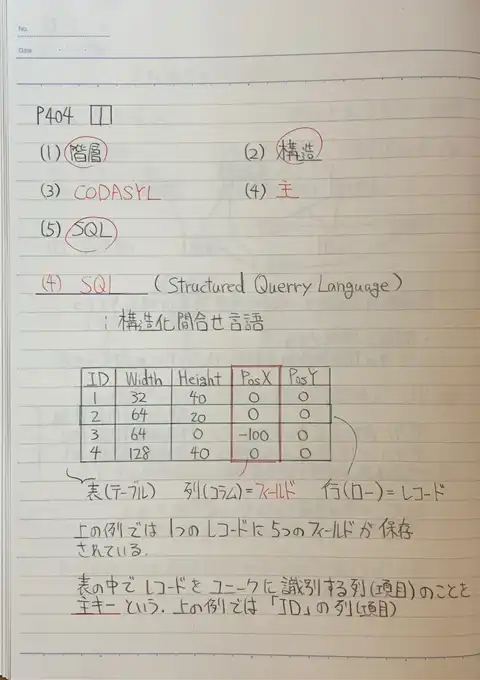 No.
Date
P404 1
(1) 階層 (2) 構造
(3) CODASYL (4) 主
(5) SQL
(4) SQL (Structured Querry Language)
: 構造化問合せ言語
ID Width Height PosX PosY
1 32 40 0 0
2 64 20 0 0
3 64 0 -100 0
4 128 40 0 0
表(テーブル) 列(コラム)=フィールド 行(ロー)=レコード
上の例では1つのレコードに5つのフィールドが保存
されている.
表の中でレコードをユニークに識別する列(項目)のことを
主キーという. 上の例では「ID」の列(項目)